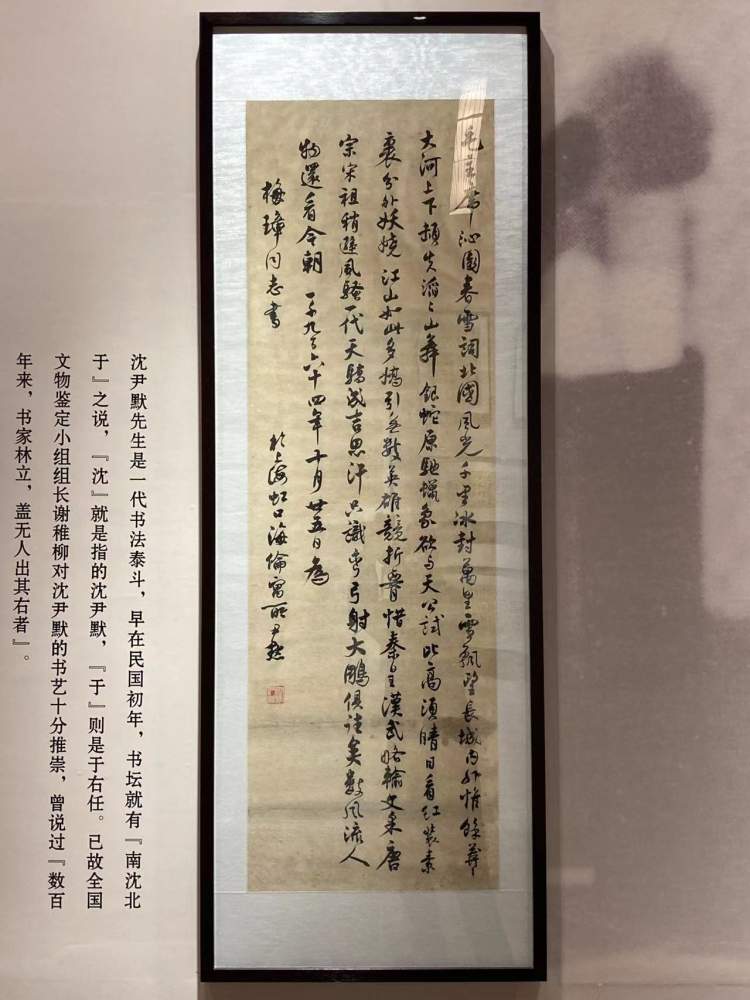 毛主席沁園春雪詞北國風光千里冰封萬里雪飄望長城内外惟餘莽〻
大河上下頓失滔〻山舞銀蛇原馳蠟象欲与天公試比高須晴日看红装素
裹分外妖娆江山如此多嬌引無數英雄競折腰惜秦皇漢武略輸文采唐
宗宋祖稍遜風騷一代天驕成吉思汗只識弯弓射大鵰俱往矣數風流人
物還看今朝 一千九百六十四年十月廿五日為
梅璋同志書 於上海虹口海倫寓所尹默
沈尹默先生是一代书法泰斗，早在民国初年，书坛就有『南沈北
于』之说，『沈』就是指的沈尹默，『于』则是于右任。已故全国
文物鉴定小组组长谢稚柳对沈尹默的书艺十分推崇，曾说过『数百
年来，书家林立，盖无人出其右者』。